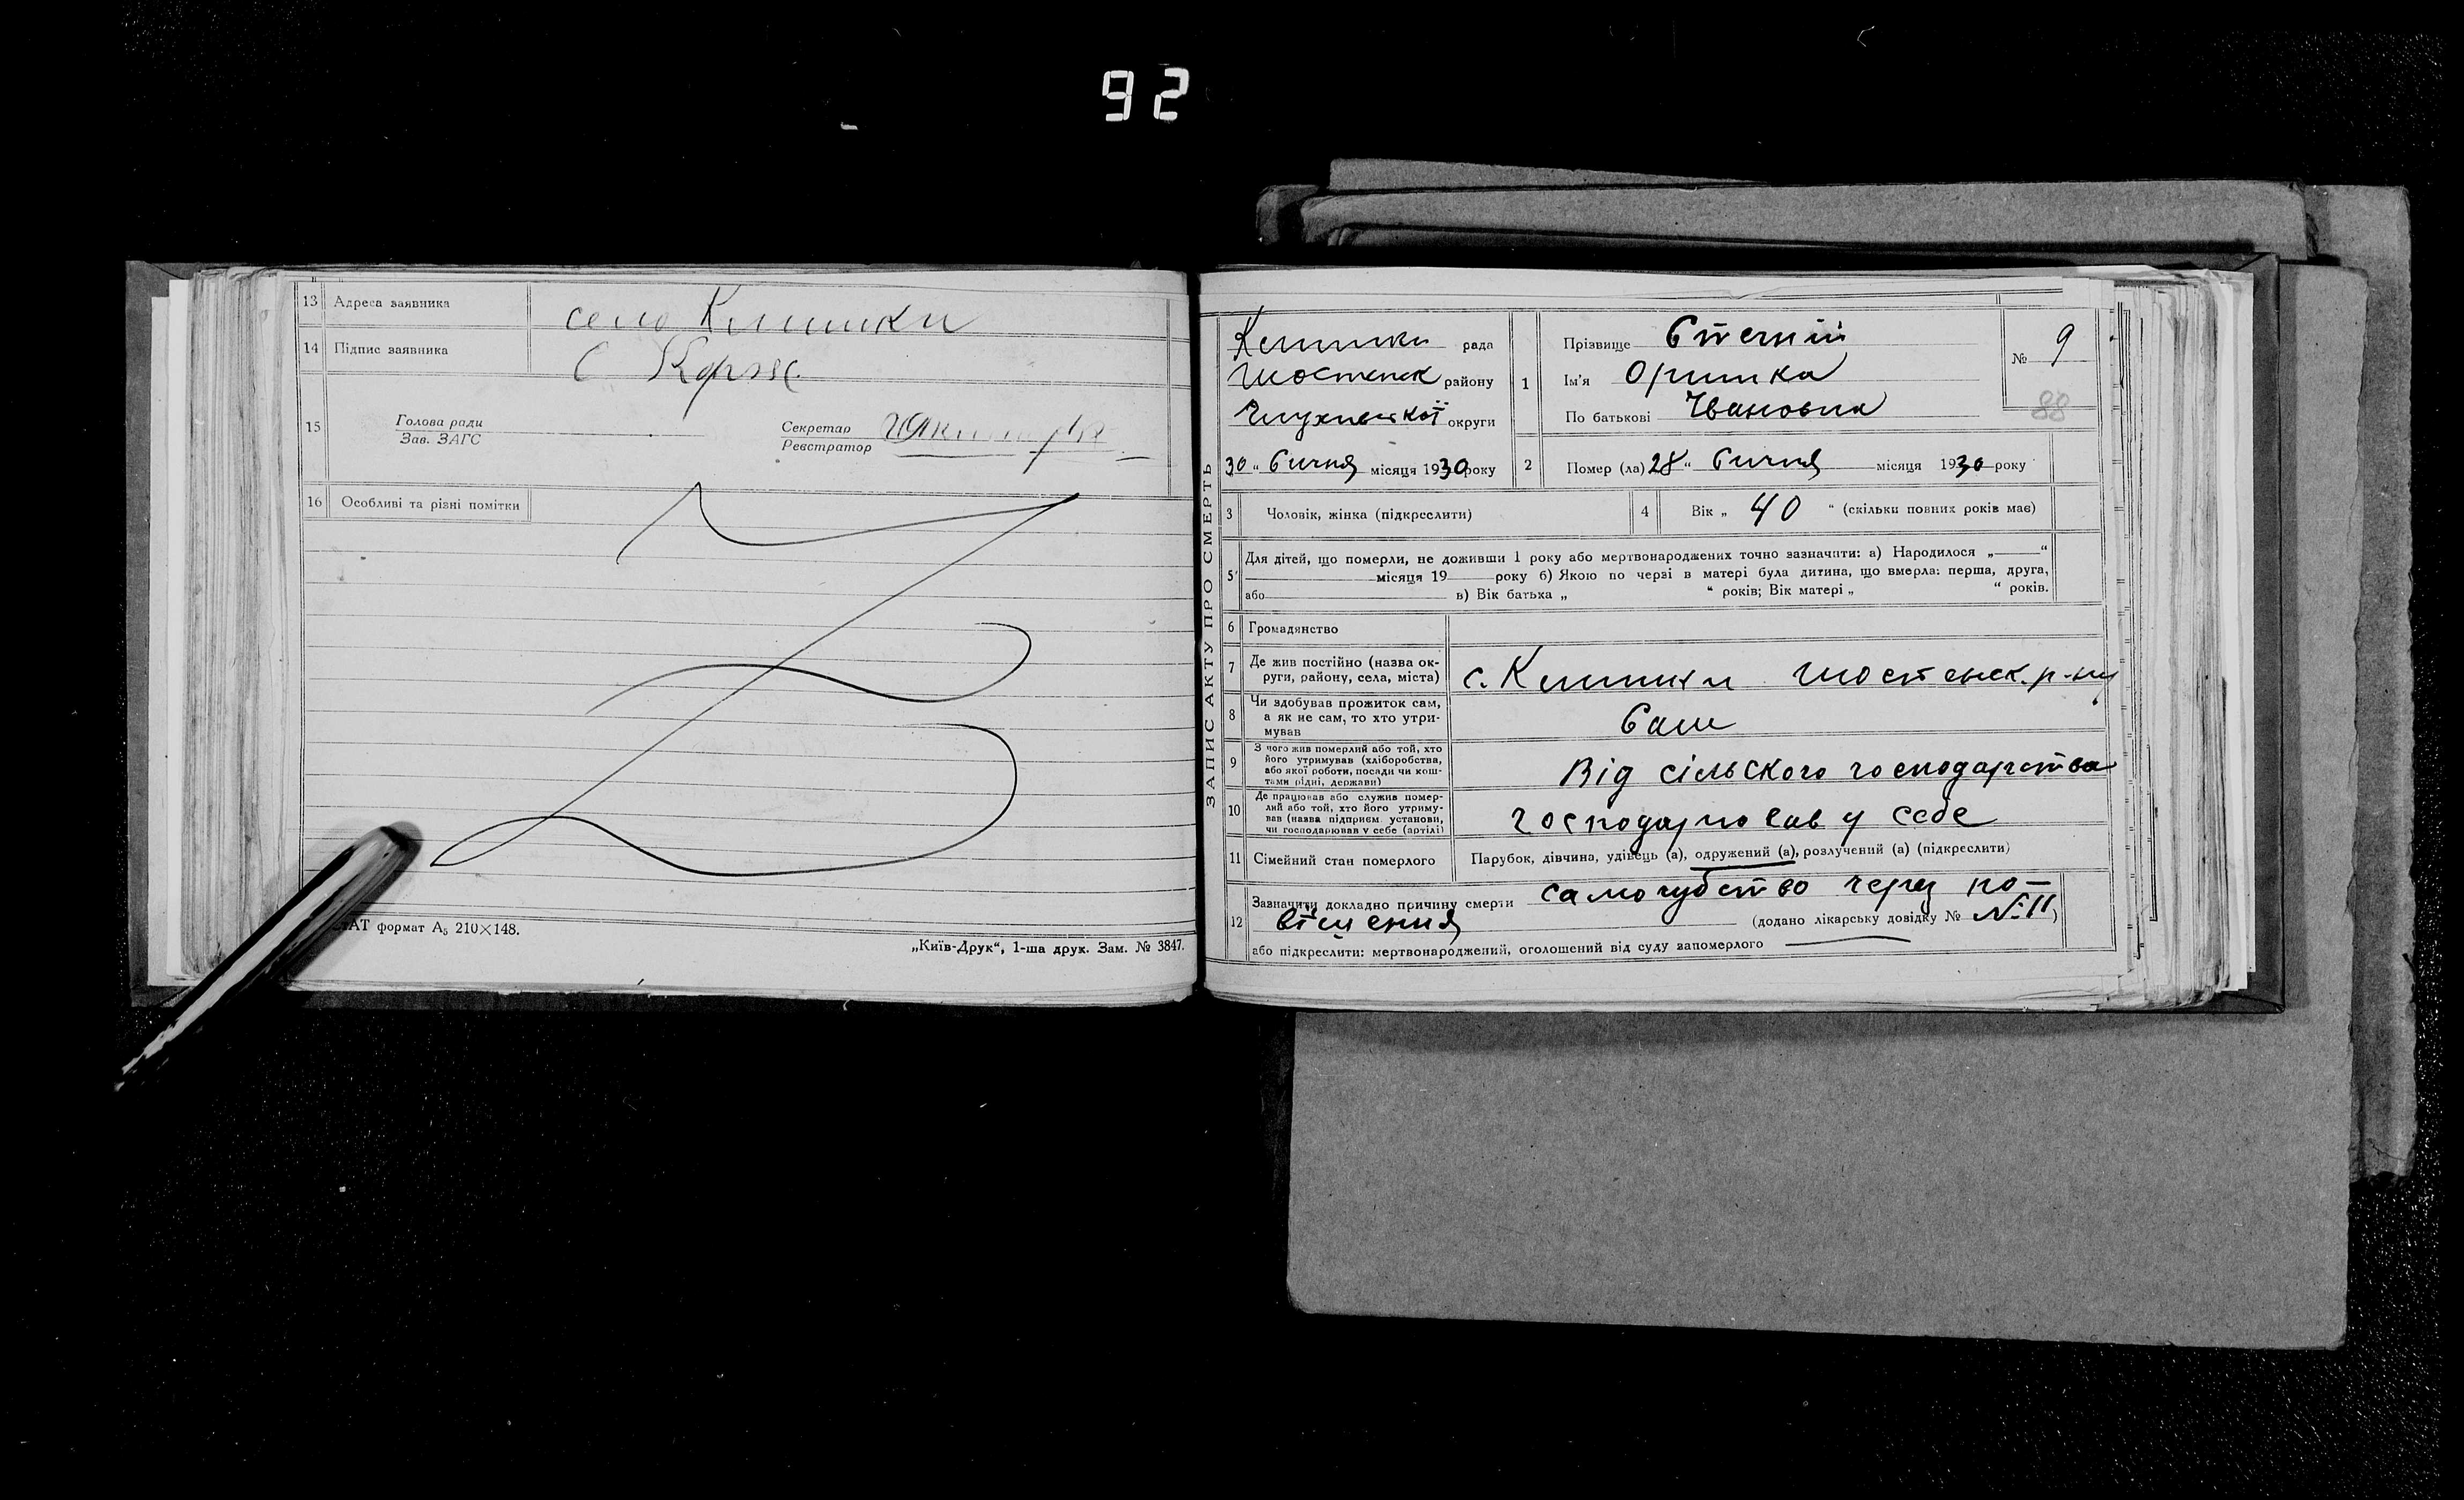 92
13 Адреса заявника село Клишки
14 Підпис заявника С Корж
15 Голова ради
Зав. ЗАГС
Секретар
Реєстратор
16 Особливі та різні помітки
АТ формат А₅ 210×148.
„Київ-Друк“, 1-ша друк. Зам. № 3847.
ЗАПИС АКТУ ПРО СМЕРТЬ
Клишки рада
Шостенск району
Глухівської округи
30 „ Січня місяця 1930 року
1 Прізвище
Ім'я Оришка
По батькові Івановна
№ 9
88
2 Помер (ла) 28 „ Січня місяця 1930 року
3 Чоловік, жінка (підкреслити)
4 Вік „ 40 “ (скільки повних років має)
5 Для дітей, що померли, не доживши 1 року або мертвонароджених точно зазначити: а) Народилося „ “
місяця 19 року б) Якою по черзі в матері була дитина, що вмерла: перша, друга,
або в) Вік батька „ “ років; Вік матері „ “ років.
6 Громадянство
7 Де жив постійно (назва ок-
руги, району, села, міста) с. Клишки Шостенск. р-ну
8 Чи здобував прожиток сам,
а як не сам, то хто утри-
мував Сам
9 З чого жив померлий або той, хто
його утримував (хліборобства,
або якої роботи, посади чи кош-
тами рідні, держави) Від сільского господарства
10 Де працював або служив помер-
лий або той, хто його утриму-
вав (назва підприєм. установи,
чи господарював у себе (артілі) господарював у себе
11 Сімейний стан померлого Парубок, дівчина, удівець (а), одружений (а), розлучений (а) (підкреслити)
12 Зазначити докладно причину смерти самогубство через по-
вішення (додано лікарську довідку № №11)
або підкреслити: мертвонароджений, оголошений від суду запомерлого